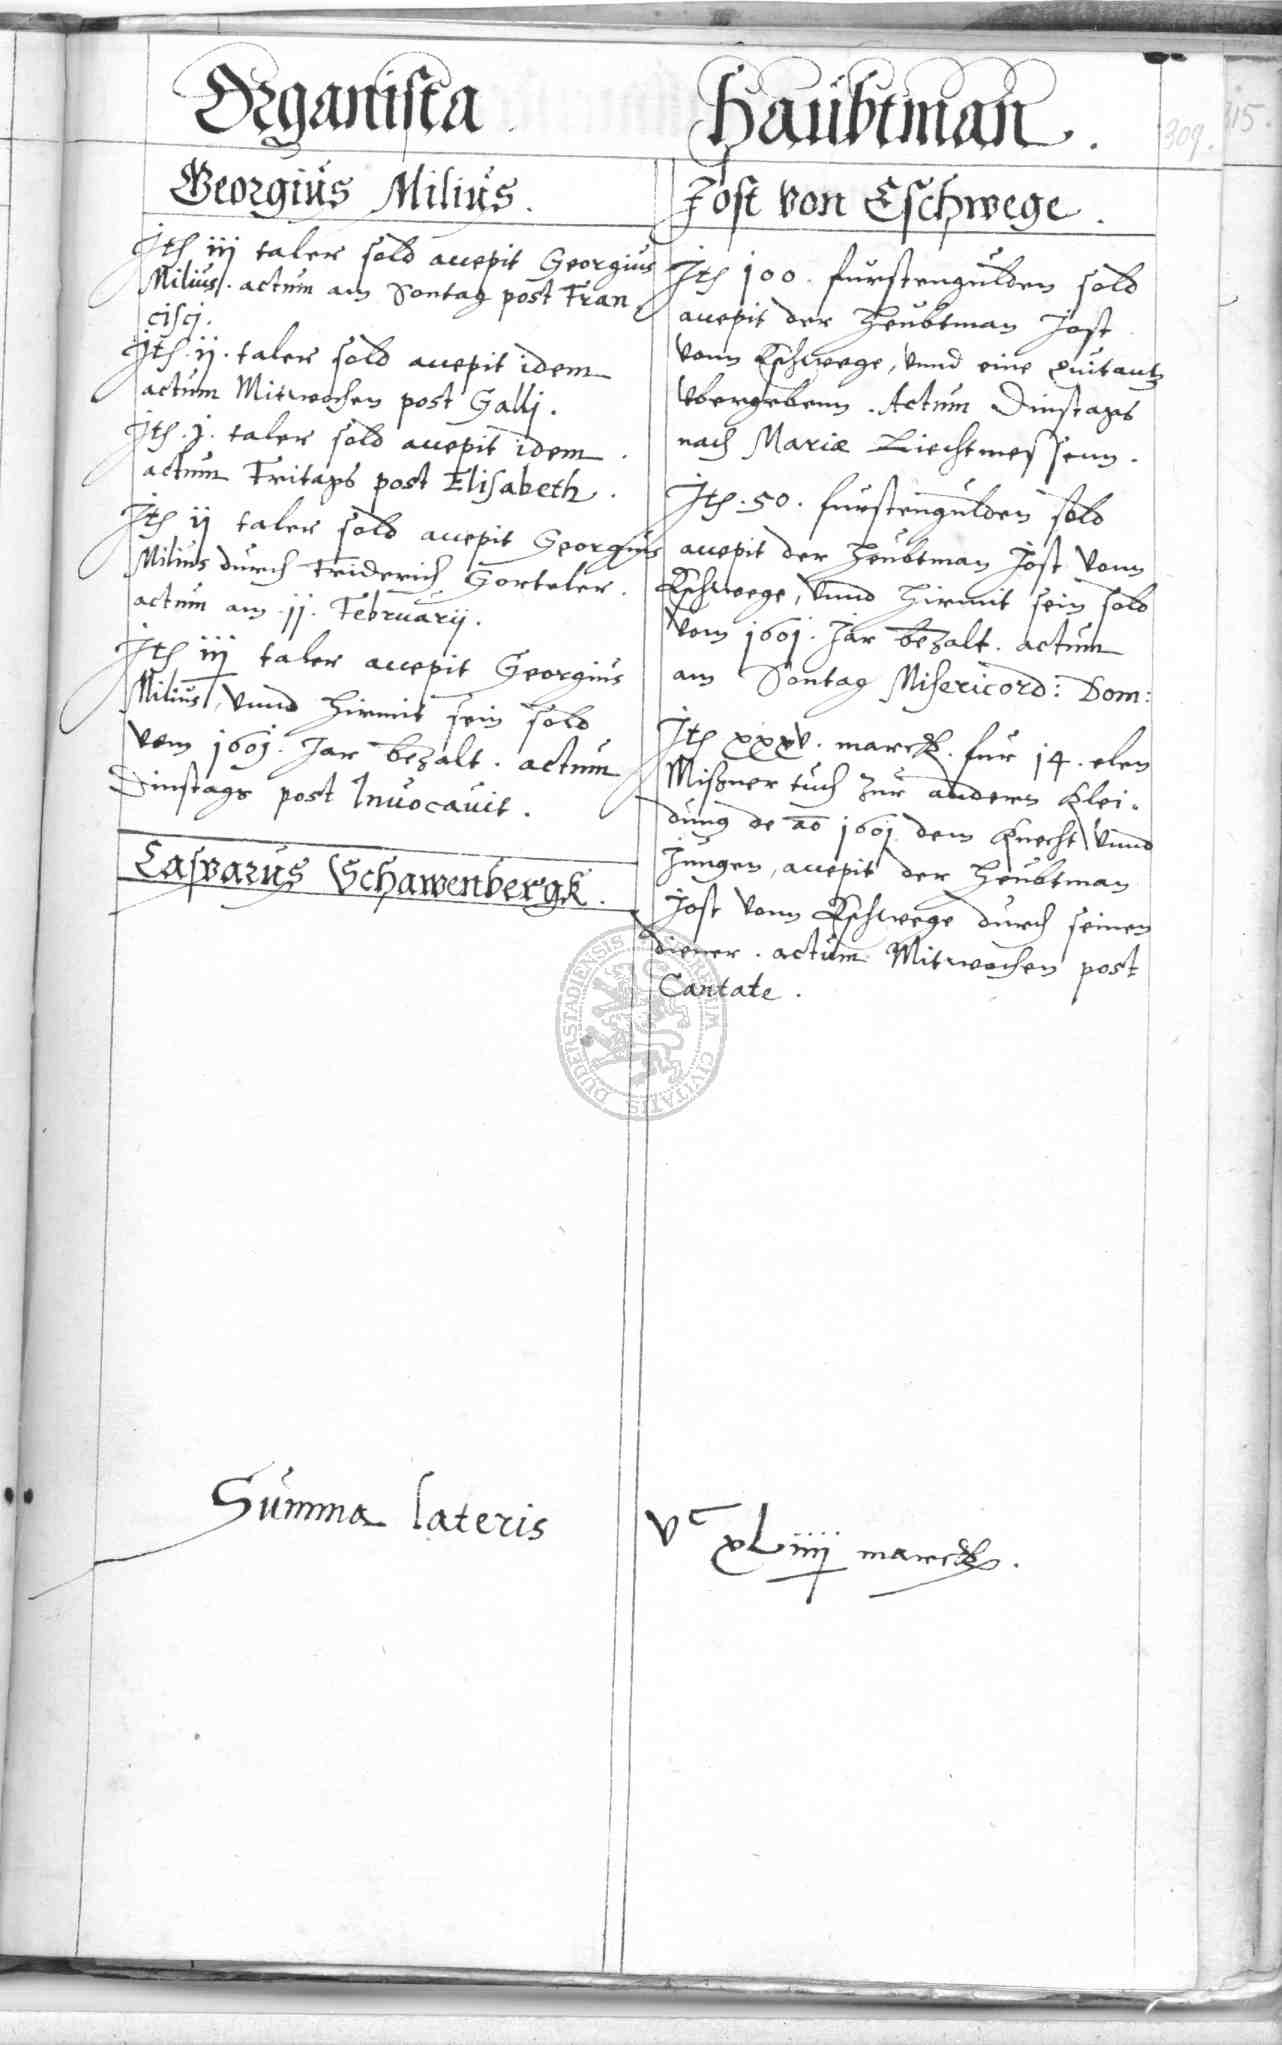 Organista.
Georgius Milius.
Ith iij taler sold accepit Georgius
Milius. actum am Sontag post Fran
cisci.
Ith. ij. taler sold accepit idem
actum Mitwochen post Galli.
Ith. j. taler sold accepit idem.
actum Fritags post Elisabeth.
Ith ij taler sold accepit Georgius
Milius durch Friderich Gorteler.
actum am jj. Februarij.
Ith iij taler accepit Georgius
Milius, vnnd hirmit sein sold
vom 1601. Jar bezalt. actum
Dinstags post Inuocauit.
Casparus Schawenbergk.
Haubtman.
309.
315.
Jost von Eschwege.
Ith 100. furstengulden sold
accepit der Heubtman Jost
vonn Eschwege, vnnd eine quitantz
vbergebenn. Actum Dinstags
nach Mariæ Liechtmessenn.
Ith. 50. furstengulden sold
accepit der Heubtman Jost vonn
Eschwege, vnnd hirmit sein sold
vom 1601. Jar bezalt. actum
am Sontag Misericord: Dom:
Ith xxxv. marck. fur 14. elen
Mißner tuch zur andern klei-
dung de ao 1601 dem knecht vnnd
Jungen, accepit der Heubtman
Jost vonn Eschwege durch seinen
diener. actum Mitwochen post
Cantate.
DUDERSTADIENSIS CIVITATIS
Summa lateris
Vc xLiiij marck.